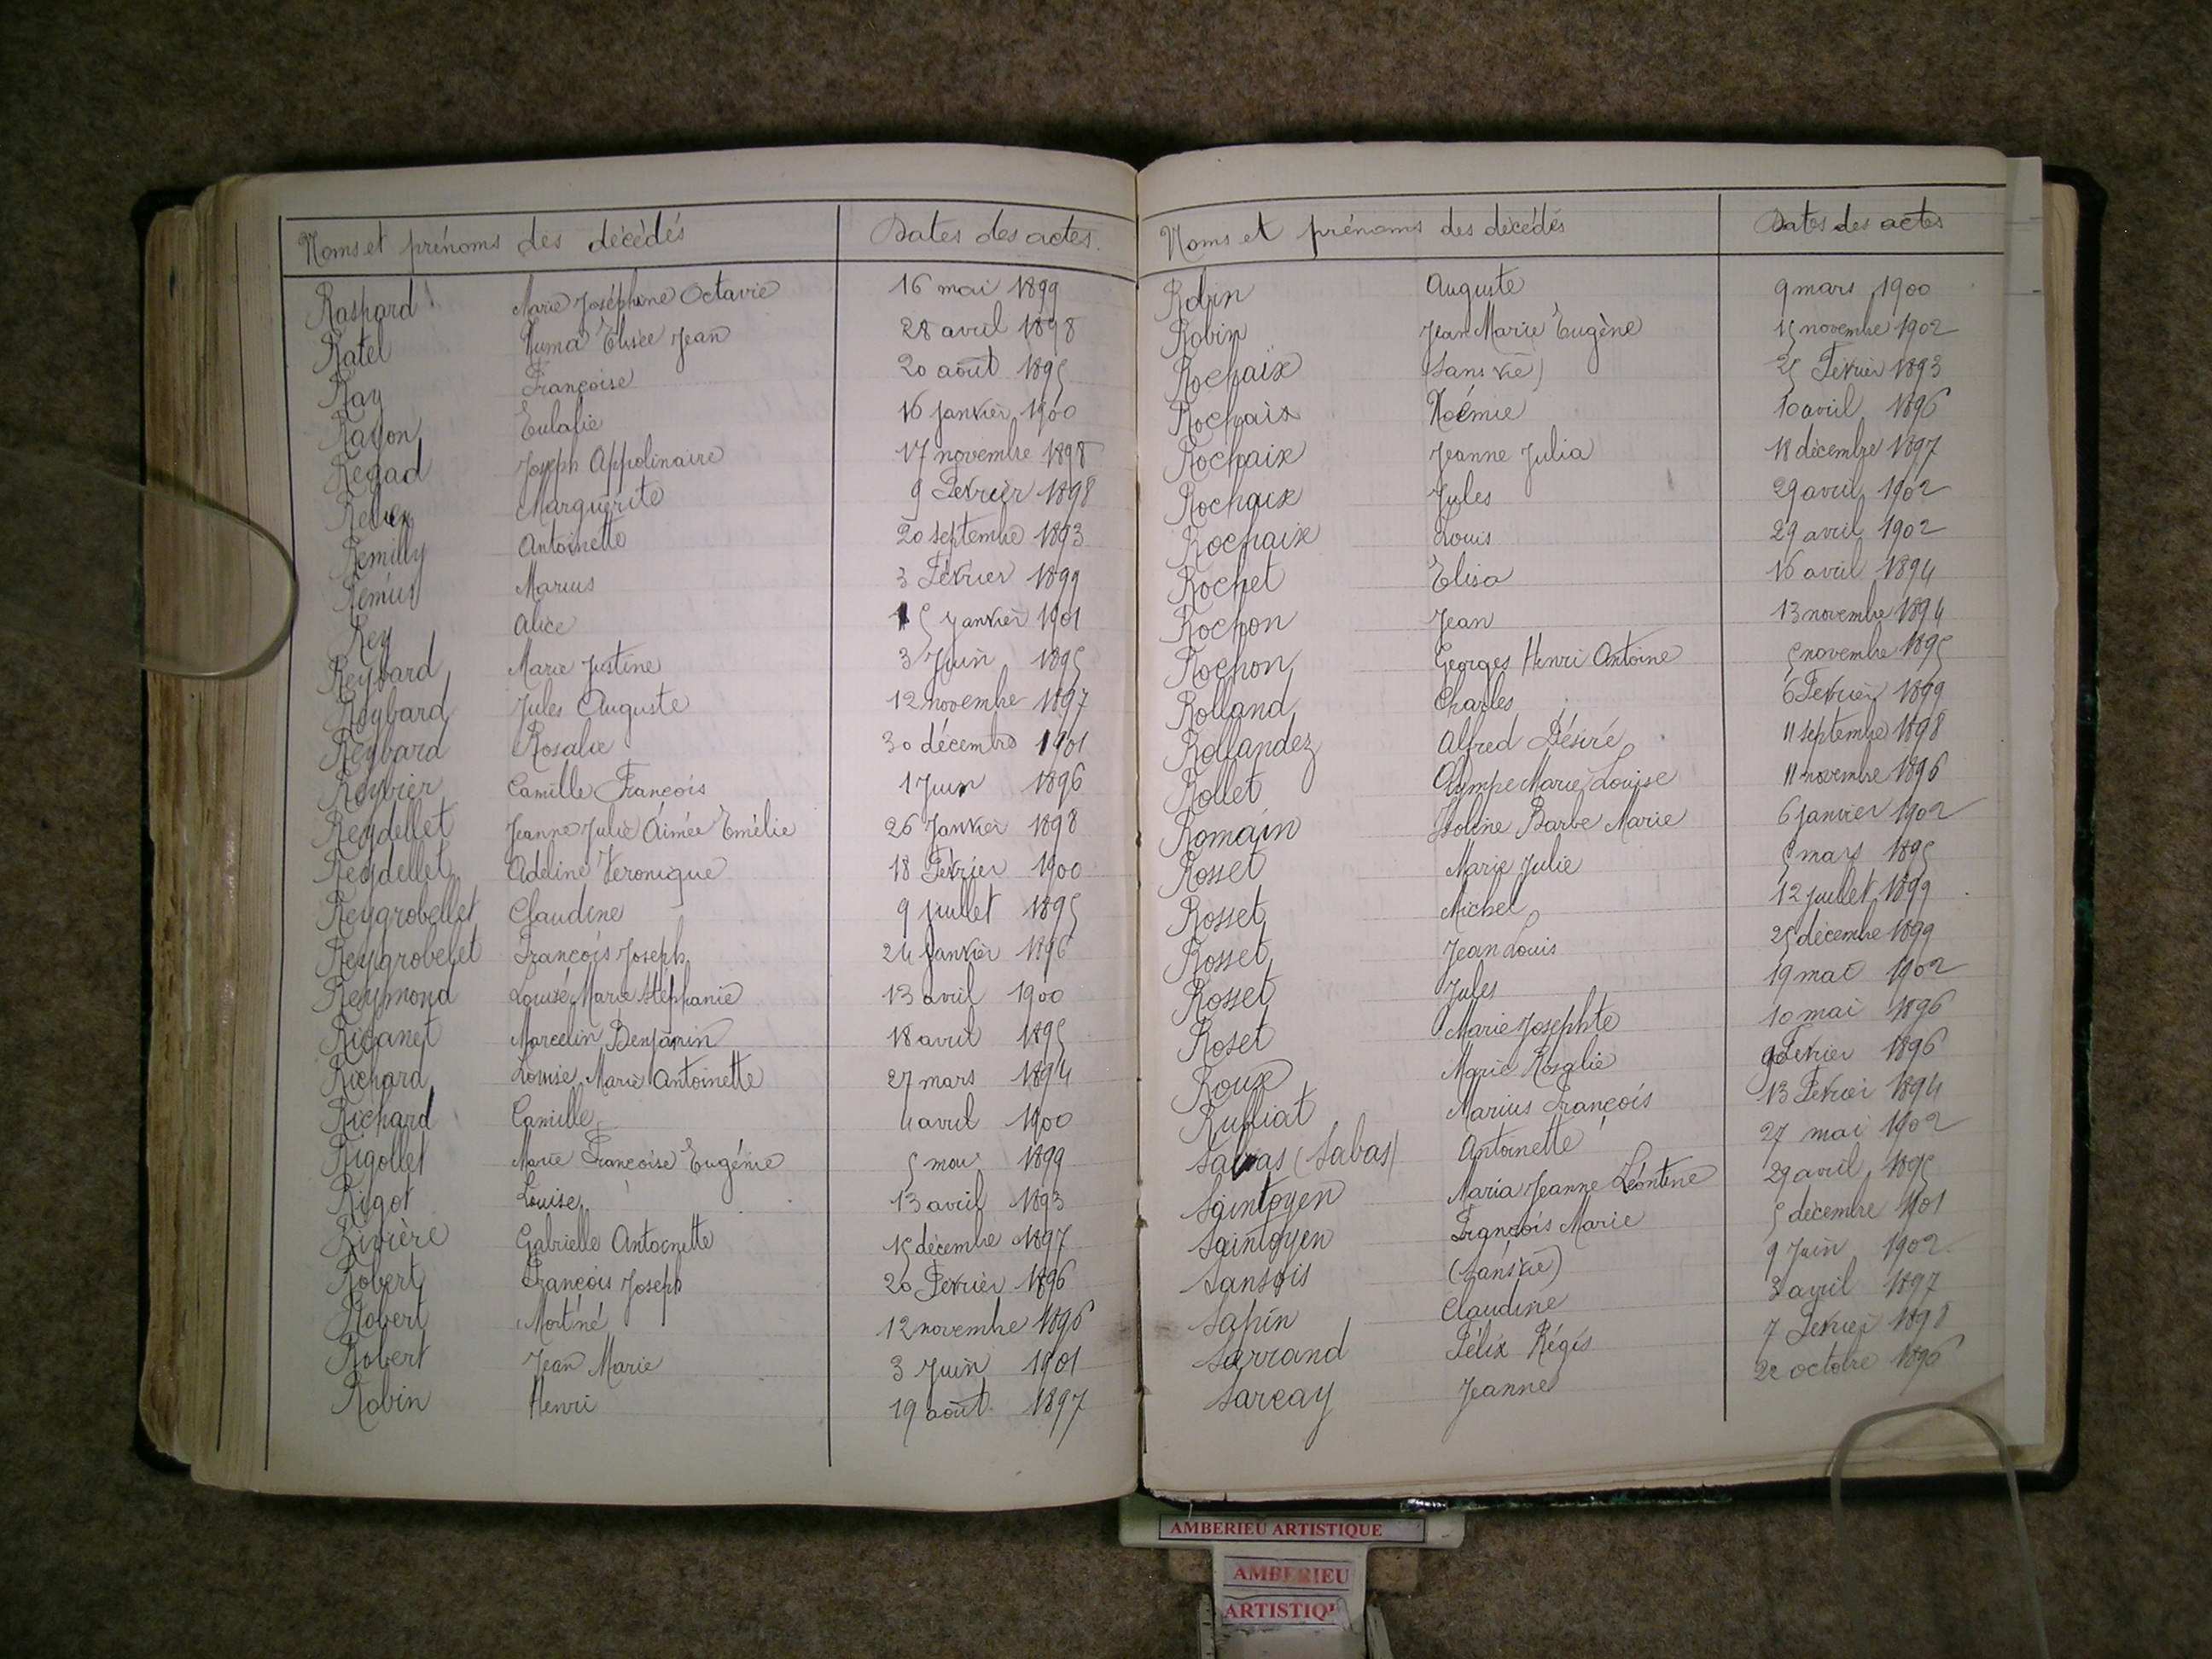 Noms et prénoms des décédés Dates des actes.
Raspard Marie Joséphine Octavie 16 mai 1899
Ratel Numa Elisée Jean 28 avril 1898
Ray Françoise 20 août 1895
Rayon Eulalie 16 janvier 1900
Regad Joseph Appolinaire 17 novembre 1898
Marguerite 9 Février 1898
Remilly Antoinette 20 septembre 1893
Rémus Marius 3 Février 1899
Rey Alice 5 janvier 1901
Reybard Marie Justine 3 Juin 1895
Reybard Jules Auguste 12 novembre 1897
Reybard Rosalie 30 décembre 1901
Reybier Camille François 1 Juin 1896
Reydellet Jeanne Julie Aimée Emélie 26 Janvier 1898
Reydellet Adeline Veronique 18 Février 1900
Reygrobellet Claudine 9 juillet 1895
Reygrobellet François Joseph 24 janvier 1896
Reymond Louise Marie Stéphanie 13 avril 1900
Ricanet Marcelin Benjamin 18 avril 1895
Richard Louise Marie Antoinette 27 mars 1894
Richard Camille 4 avril 1900
Rigollet Marie Françoise Eugénie 5 mai 1899
Rigot Louise 13 avril 1893
Rivière Gabrielle Antoinette 15 décembre 1897
Robert François Joseph 20 Février 1896
Robert Mort né 12 novembre 1896
Robert Jean Marie 3 Juin 1901
Robin Henri 19 août 1897
Noms et prénoms des décédés Dates des actes
Robin Auguste 9 mars 1900
Robin Jean Marie Eugène 15 novembre 1902
Rochaix (Sans vie) 25 Février 1893
Rochaix Noémie 10 avril 1896
Rochaix Jeanne Julia 18 décembre 1897
Rochaix Jules 29 avril 1902
Rochaix Louis 29 avril 1902
Rochet Elisa 16 avril 1894
Rochon Jean 13 novembre 1894
Rochon Georges Henri Antoine 5 novembre 1895
Rolland Charles 6 Février 1899
Rollandez Alfred Désiré 11 septembre 1898
Rollet Olympe Marie Louise 11 novembre 1896
Romain Isoline Barbe Marie 6 janvier 1902
Rosset Marie Julie 5 mars 1895
Rosset Michel 12 juillet 1899
Rosset Jean Louis 25 décembre 1899
Rosset Jules 19 mai 1902
Roset Marie Josephte 10 mai 1896
Roux Marie Rosalie Février 1896
Ruffiat Marius François 13 Février 1894
(Sabas) Antoinette 27 mai 1902
Saintoyen Maria Jeanne Léontine 29 avril 1895
Saintoyen François Marie 5 décembre 1901
Sansois (Sans vie) 9 Juin 1902
Sapin Claudine 3 avril 1897
Sarrand Félix Régis 7 Février 1898
Sarcay Jeanne octobre 1896
AMBERIEU ARTISTIQUE
AMBERIEU
ARTISTIQ